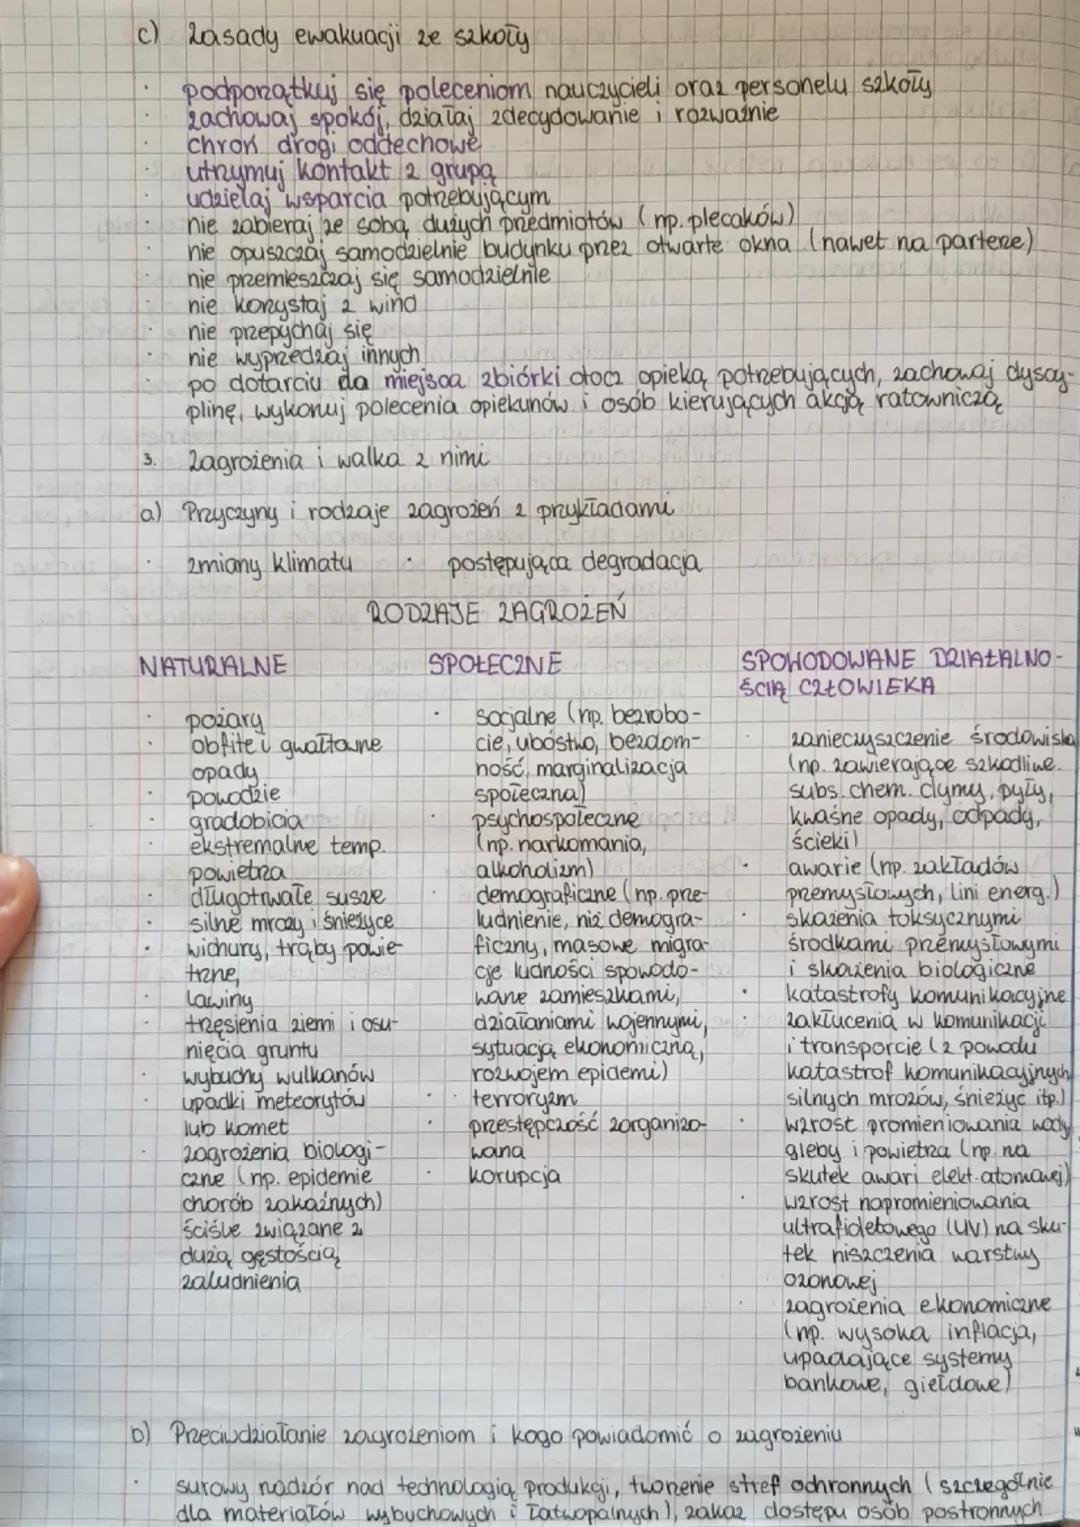 c) Zasady ewakuacji ze szkoły
· podporządkuj się poleceniom nauczycieli oraz personelu szkoły
· zachowaj spokój, działaj zdecydowanie i rozważnie
· chroń drogi oddechowe
· utrzymuj kontakt z grupą
· udzielaj wsparcia potrzebującym
· nie zabieraj ze sobą dużych przedmiotów (np. plecaków)
· nie opuszczaj samodzielnie budynku przez otwarte okna (nawet na parterze)
· nie przemieszczaj się samodzielnie
· nie korzystaj z wind
· nie przepychaj się
· nie wyprzedzaj innych
· po dotarciu do miejsca zbiórki otocz opieką potrzebujących, zachowaj dyscy-
plinę, wykonuj polecenia opiekunów i osób kierujących akcją ratowniczą
3. Zagrożenia i walka z nimi
a) Przyczyny i rodzaje zagrożeń z przykładami
· zmiany klimatu · postępująca degradacja
RODZAJE ZAGROŻEŃ
NATURALNE
· pożary
· obfite i gwałtowne
opady
· powodzie
· gradobicia
· ekstremalne temp.
powietrza
· długotrwałe susze
· silne mrozy i śnieżyce
· wichury, trąby powie-
trzne,
· lawiny
· trzęsienia ziemi i osu-
nięcia gruntu
· wybuchy wulkanów
· upadki meteorytów
lub komet
· zagrożenia biologi-
czne (np. epidemie
chorób zakaźnych)
ściśle związane z
dużą gęstością
zaludnienia
SPOŁECZNE
· socjalne (np. bezrobo-
cie, ubóstwo, bezdom-
ność, marginalizacja
społeczna)
· psychospołeczne
(np. narkomania,
alkoholizm)
· demograficzne (np. prze-
ludnienie, niż demogra-
ficzny, masowe migra-
cje ludności spowodo-
wane zamieszkami,
działaniami wojennymi,
sytuacją ekonomiczną,
rozwojem epidemi)
· terroryzm
· przestępczość zorganizo-
wana
· korupcja
SPOWODOWANE DZIAŁALNO-
ŚCIĄ CZŁOWIEKA
· zanieczyszczenie środowiska
(np. zawierające szkodliwe.
subs. chem. dymy, pyły,
kwaśne opady, odpady,
ścieki)
· awarie (np. zakładów
przemysłowych, lini energ.)
· skażenia toksycznymi
środkami przemysłowymi
i skażenia biologiczne
· katastrofy komunikacyjne
· zakłucenia w komunikacji
i transporcie (z powodu
katastrof komunikacyjnych
silnych mrozów, śnieżyc itp.)
· wzrost promieniowania wody
gleby i powietrza (np. na
skutek awari elekt. atomowej)
· wzrost napromieniowania
ultrafioletowego (UV) na sku-
tek niszczenia warstwy
ozonowej
· zagrożenia ekonomiczne
(np. wysoka inflacja,
upadające systemy
bankowe, giełdowe)
b) Przeciwdziałanie zagrożeniom i kogo powiadomić o zagrożeniu
· surowy nadzór nad technologią produkcji, tworzenie stref ochronnych (szczególnie
dla materiałów wybuchowych i łatwopalnych), zakaz dostępu osób postronnych